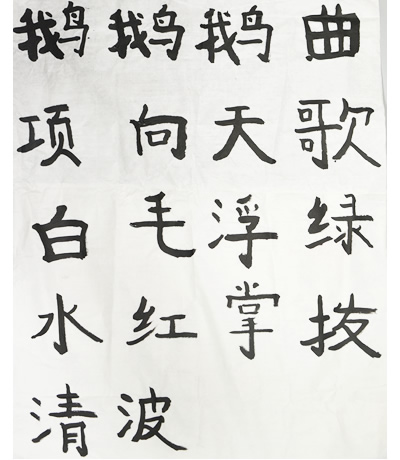 鹅鹅鹅曲
项向天歌
白毛浮绿
水红掌拔
清波